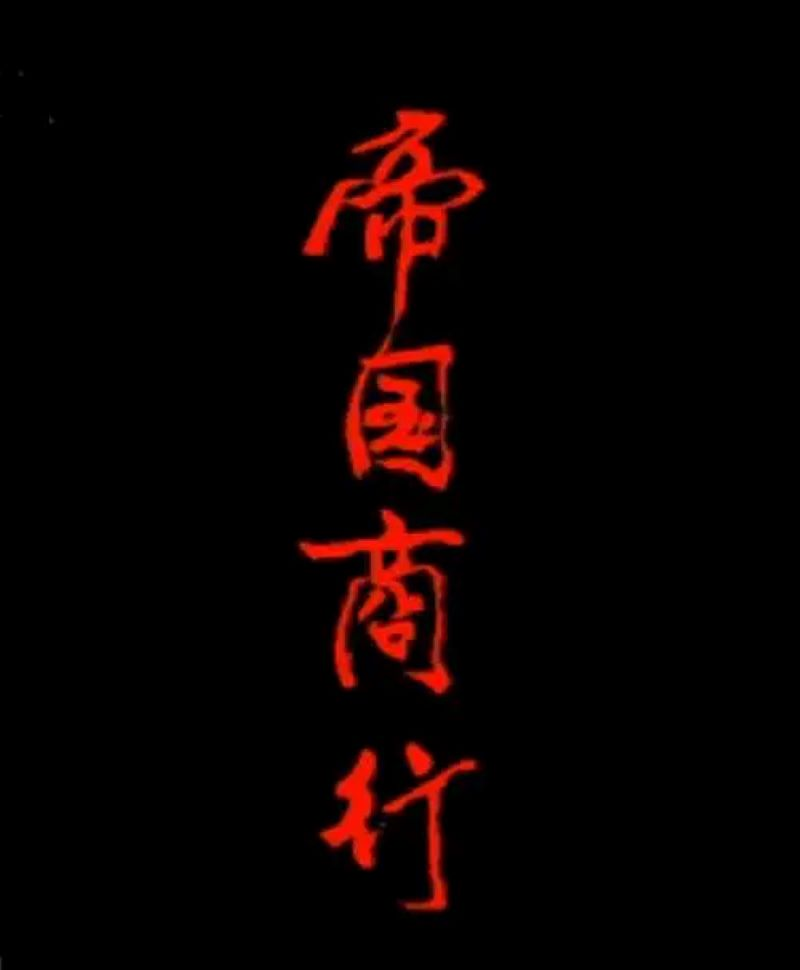 帝国商行